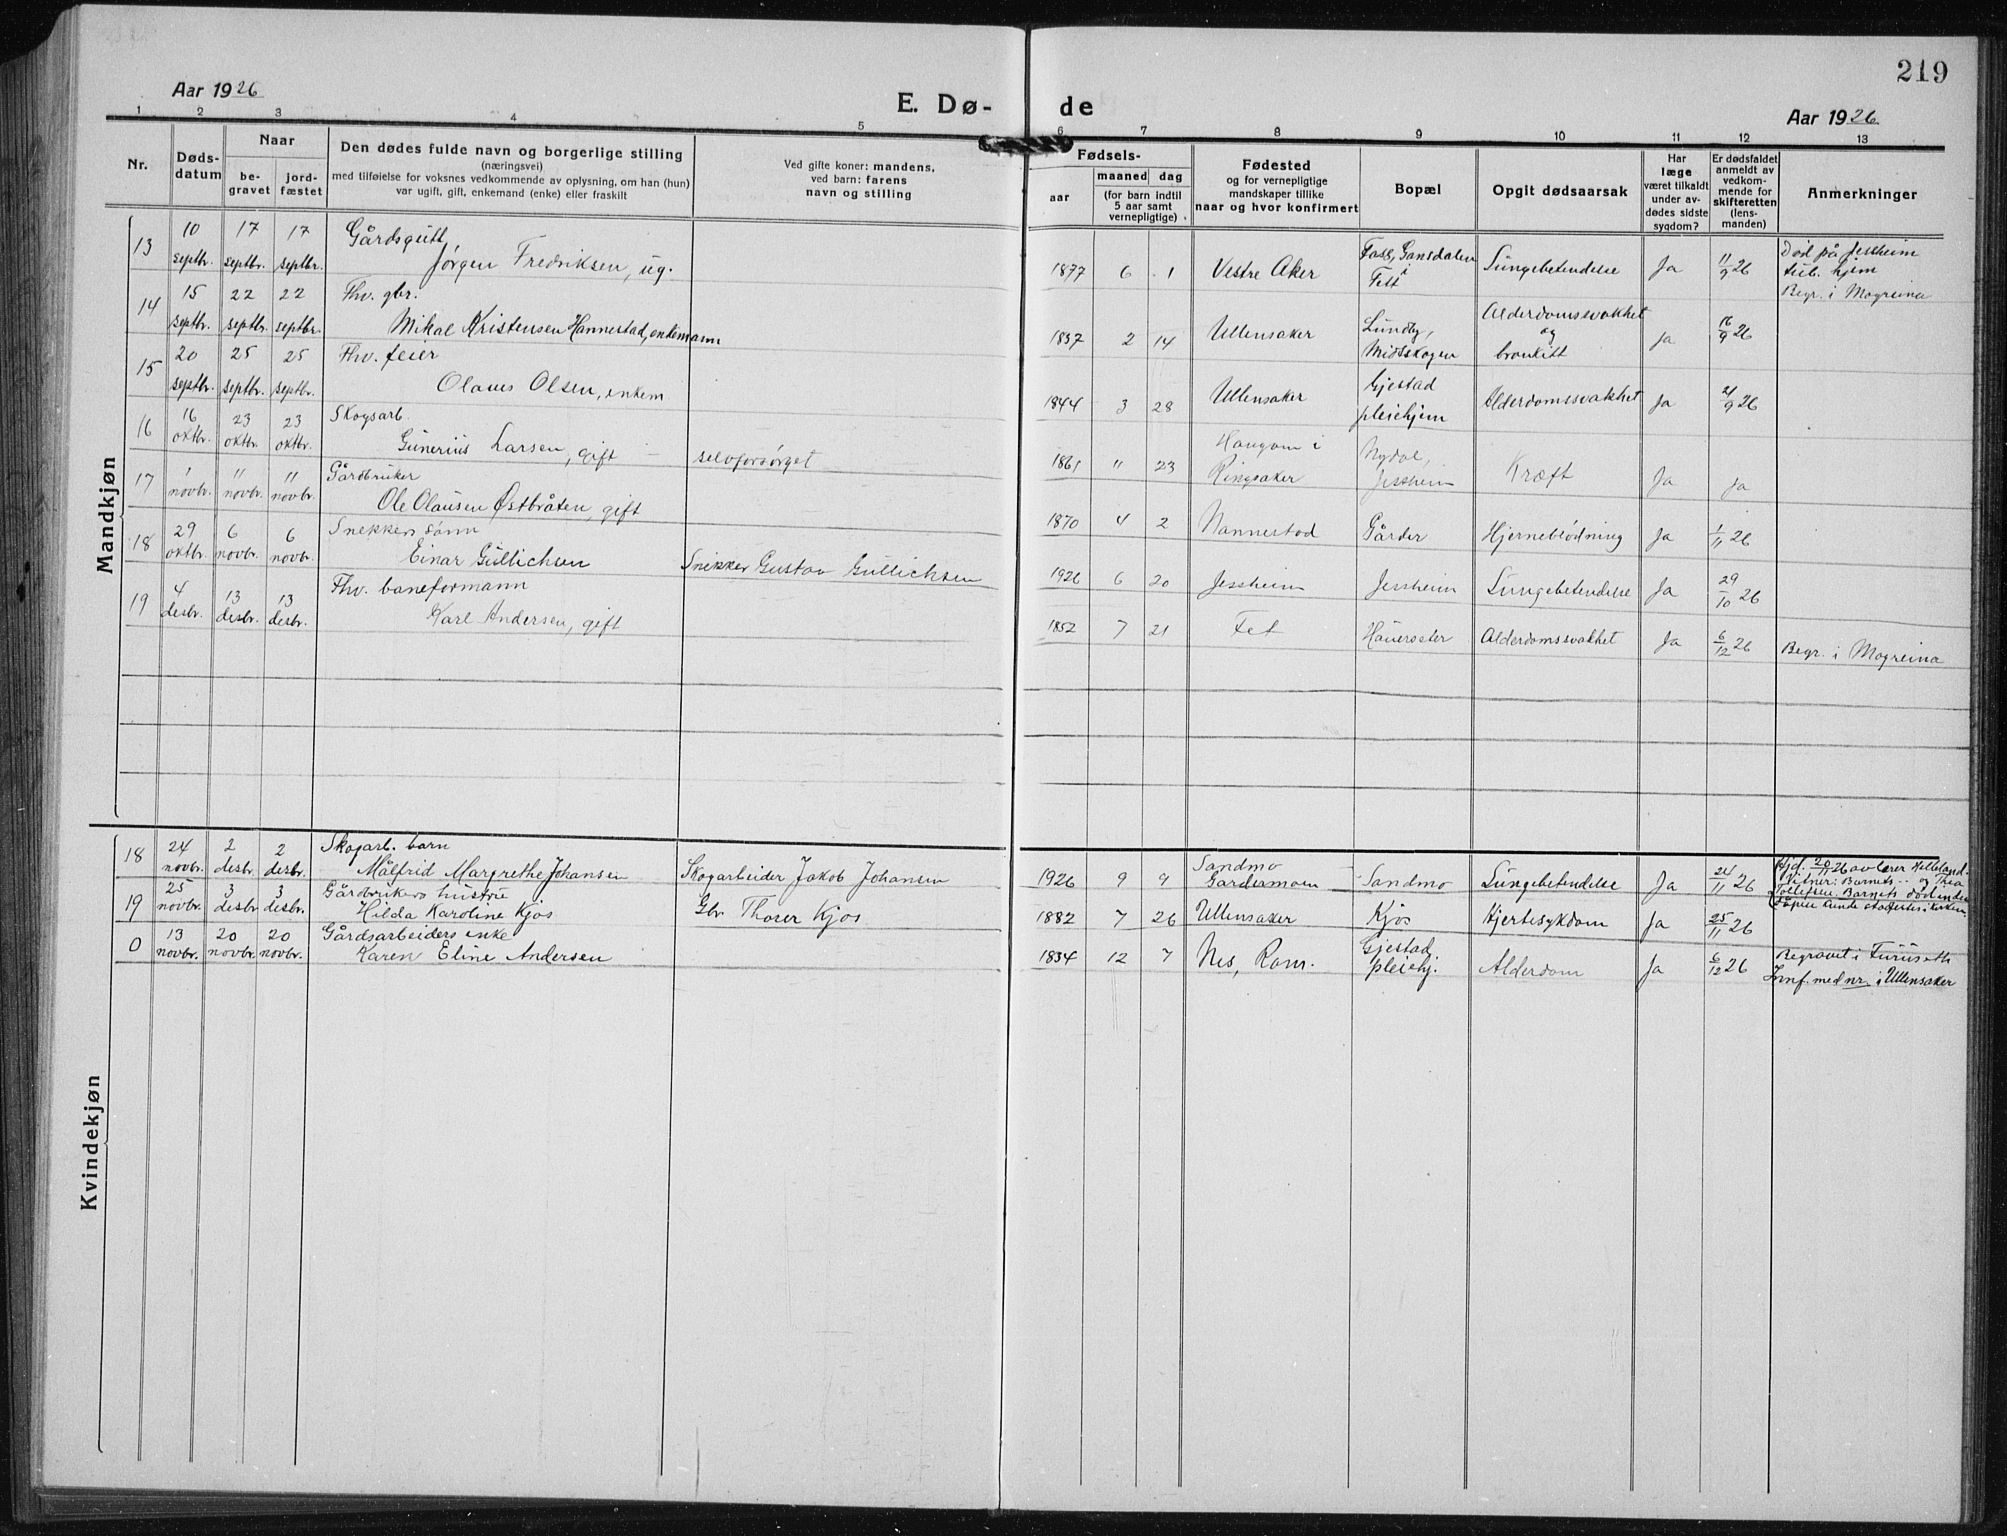 219
Aar 1926
E. Dø- de
Aar 1926
1 2 3 4 5 6 7 8 9 10 11 12 13
Nr.
Døds-
datum
Naar
be-
gravet
jord-
fæstet
Den dødes fulde navn og borgerlige stilling
(næringsvei)
med tilføielse for voksnes vedkommende av oplysning, om han (hun)
var ugift, gift, enkemand (enke) eller fraskilt
Ved gifte koner: mandens,
ved barn: farens
navn og stilling
Fødsels-
aar
maaned dag
(for barn indtil
5 aar samt
vernepligtige)
Fødested
og for vernepligtige
mandskaper tillike
naar og hvor konfirmert
Bopæl
Opgit dødsaarsak
Har
læge
været tilkaldt
under av-
dødes sidste
sygdom?
Er dødsfaldet
anmeldt av
vedkom-
mende for
skifteretten
(lens-
manden)
Anmerkninger
Mandkjøn
13 10 septbr. 17 septbr. 17 septbr. Gårdsgutt
Jørgen Fredriksen, ug.
1877 6 1 Vestre Aker Gansdalen i Fett Lungebetendelse Ja 11/9 26 Død på Jessheim
tub. hjem
Begr. i Mogreina
14 15 septbr. 22 septbr. 22 septbr. Fhv. gbr.
Mikal Kristensen Hannestad, enkemann
1837 2 14 Ullensaker Lundby, Midtskogen Alderdomssvakhet og bronkitt Ja 16/9 26
15 20 septbr. 25 septbr. 25 septbr. Fhv. feier
Olaus Olsen, enkem
1844 3 28 Ullensaker Gjestad pleiehjem Alderdomssvakhet Ja 21/9 26
16 16 oktbr. 23 oktbr. 23 oktbr. Skogsarb.
Gunerius Larsen, gift – selvforsørget
1861 11 23 i Ringsaker Nydal, Jessheim Kræft Ja Ja
17 1 novbr. 11 novbr. 11 novbr. Gårdbruker
Ole Olausen Østbråten, gift
1870 4 2 Nannestad Gårder Hjerneblødning Ja 1/11 26
18 29 oktbr. 6 novbr. 6 novbr. Snekkers sønn
Einar Gullichsen Snekker Gustav Gullichsen
1926 6 20 Jessheim Jessheim Lungebetendelse Ja 29/10 26
19 4 desbr. 13 desbr. 13 desbr. Fhv. baneformann
Karl Andersen, gift
1852 7 21 Fet Hauerseter Alderdomssvakhet Ja 6/12 26 Begr. i Mogreina
Kvindekjøn
18 24 novbr. 2 desbr. 2 desbr. Skogarb. barn
Målfrid Margrethe Johansen Skogarbeider Jakob Johansen
1926 9 9 Sandmo Gardermoen Sandmo Lungebetendelse Ja 24/11 26 Hjd. 20/11 26 av lærer Helleland.
Vidner: Barnets og Thea
Tollefsen Barnets død
19 25 novbr. 3 desbr. 3 desbr. Gårdbrukers hustru
Hilda Karoline Kjos Gbr. Thorer Kjos
1882 7 26 Ullensaker Kjos Hjertesykdom Ja 25/11 26
0 13 novbr. 20 novbr. 20 novbr. Gårdsarbeiders enke
Karen Eline Andersen
1834 12 7 Nes, Rom. Gjestad pleiehj. Alderdom Ja 6/12 26 Begravet i Furuseth
Innf. med nr. i Ullensaker